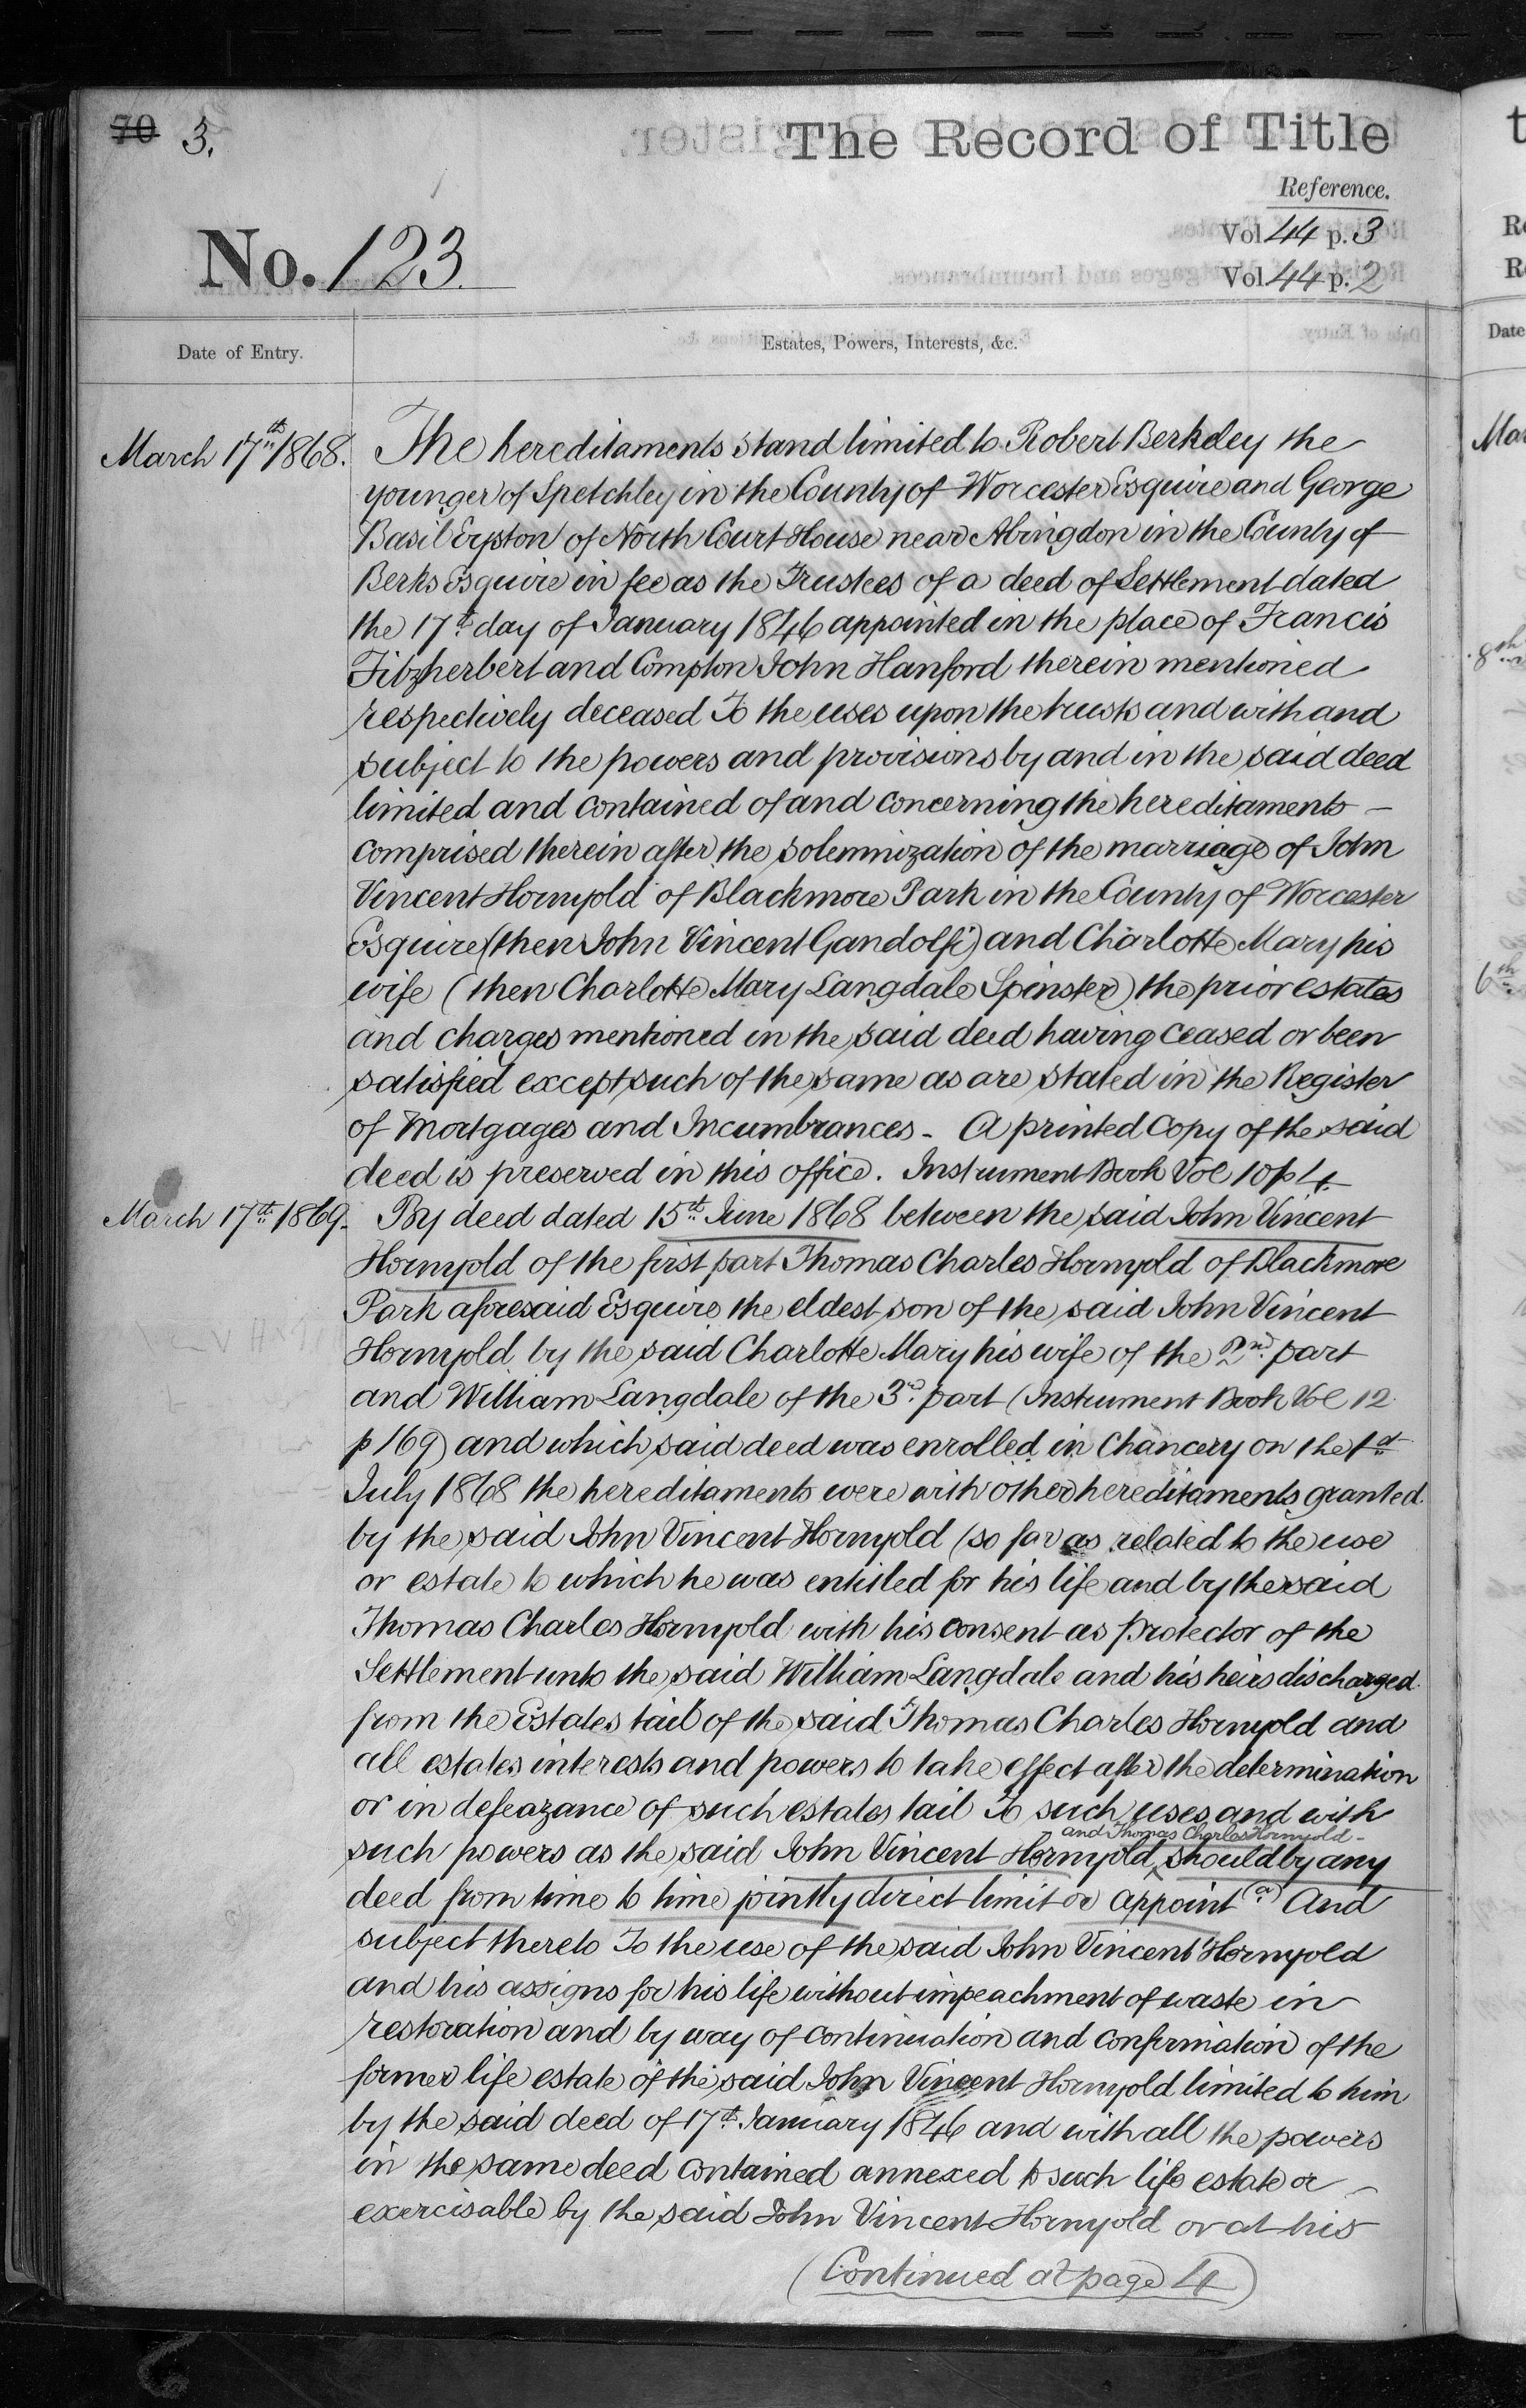 70 3.
The Record of Title
Reference.
No. 123.
Vol 44 p. 3
Vol 44 p. 2
Date of Entry.
Estates, Powers, Interests, &c.
March 17th 1868.
The hereditaments stand limited to Robert Berkeley the
younger of Spetchley in the County of Worcester Esquire and George
Basil Eyston of North Court House near Abingdon in the County of
Berks Esquire in fee as the Trustees of a deed of Settlement dated
the 17th day of January 1846 appointed in the place of Francis
Fitzherbert and Compton John Hanford therein mentioned
respectively deceased To the uses upon the trusts and with and
subject to the powers and provisions by and in the said deed
limited and contained of and concerning the hereditaments –
comprised therein after the solemnization of the marriage of John
Vincent Hornyold of Blackmore Park in the County of Worcester
Esquire (then John Vincent Gandolfi) and Charlotte Mary his
wife (then Charlotte Mary Langdale Spinster) the prior estates
and charges mentioned in the said deed having ceased or been
satisfied except such of the same as are stated in the Register
of Mortgages and Incumbrances – A printed Copy of the said
deed is preserved in this office. Instrument Book Vol 10 p 4.
March 17th 1869.
By deed dated 15th June 1868 between the said John Vincent
Hornyold of the first part Thomas Charles Hornyold of Blackmore
Park aforesaid Esquire the eldest son of the said John Vincent
Hornyold by the said Charlotte Mary his wife of the 2nd part
and William Langdale of the 3rd part (Instrument Book Vol 12
p 169) and which said deed was enrolled in Chancery on the 1st
July 1868 the hereditaments were with other hereditaments granted
by the said John Vincent Hornyold (so far as related to the use
or estate to which he was entitled for his life and by the said
Thomas Charles Hornyold with his consent as protector of the
Settlement unto the said William Langdale and his heirs discharged
from the Estates tail of the said Thomas Charles Hornyold and
all estates interests and powers to take effect after the determination
or in defeazance of such estates tail To such uses and with
and Thomas Charles Hornyold –
such powers as the said John Vincent Hornyold should by any
deed from time to time jointly direct limit or appoint (a) And
subject thereto To the use of the said John Vincent Hornyold
and his assigns for his life without impeachment of waste in
restoration and by way of continuation and confirmation of the
former life estate of the said John Vincent Hornyold limited to him
by the said deed of 17th January 1846 and with all the powers
in the same deed contained annexed to such life estate or –
exercisable by the said John Vincent Hornyold or at his
(Continued at page 4)
t
Re
Re
Date
Mar
8th
6th